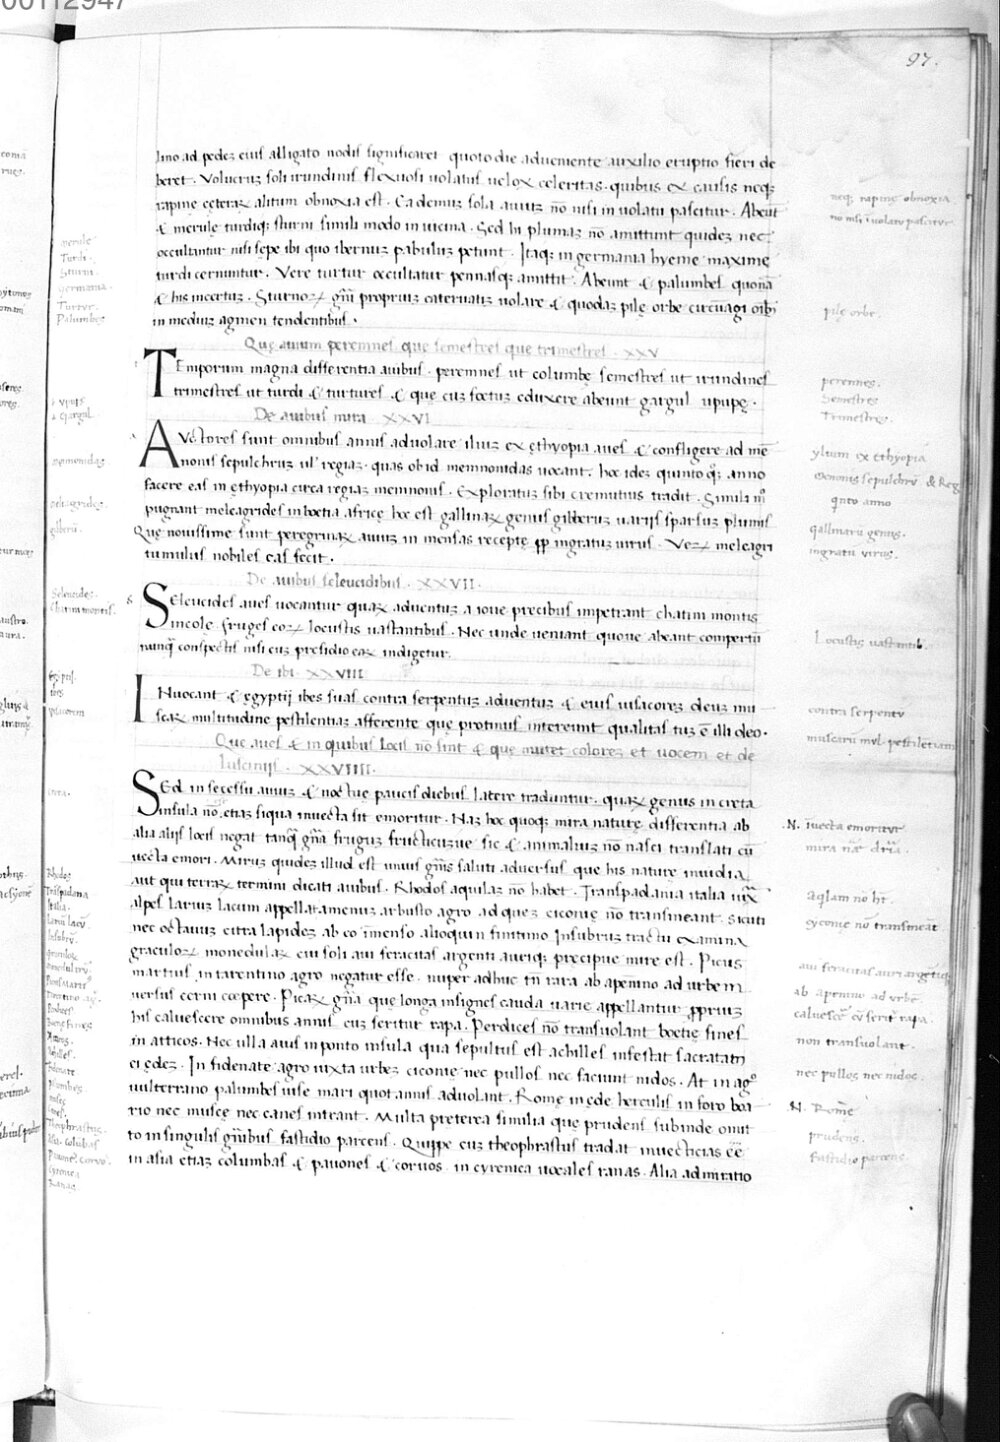 00112947
97.
lino ad pedes eius alligato nodis significaret quoto die adueniente auxilio eruptio fieri de
beret. Volucruʒ soli irundinis flexuosi uolatus uelox celeritas. quibus ex causis neqʒ
rapine ceterarum alitum obnoxia est. Ea demuʒ sola auiuʒ nō nisi in uolatu pascitur. Abeūt
& merule turdiqʒ sturni simili modo in uicina. Sed hi plumaʒ nō amittunt quideʒ nec
occultantur nisi sepe ibi quo ibernuʒ pabuluʒ petunt. Itaqʒ in germania hyeme maxime
turdi cernuntur. Vere turtur occultatur pennasqʒ amittit. Abeunt & palumbes quonā
& his incertuʒ. Sturnoꝝ gn̄i propriuʒ cateruatiʒ uolare & quodaʒ pilę orbe circūagi oīb9
in mediuʒ agmen tendentibus.
Quę auium peremnes que semestres que trimestres. XXV
Temporum magna differentia auibus. peremnes ut columbę semestres ut irundines
trimestres ut turdi & turtures & que cuʒ foetus eduxere abeunt gargul upupę.
De auibus mira XXVI
Auctores sunt omnibus annis aduolare iliuʒ ex ethyopia aues & confligere ad mē
nonis sepulchruʒ ul' regiaʒ. quas ob id memnonidas uocant. hoc ideʒ quinto qʒ anno
facere eas in ęthyopia circa regiaʒ memnonis. Exploratuʒ sibi cremutius tradit. Simili mō
pugnant meleagrides in boetia africę hoc est gallinaꝝ genus gibberuʒ uariis sparsuʒ plumis
Quę nouissime sunt peregrinaꝝ auiuʒ in mensas recepte ꝓp ingratuʒ uirus. Veꝝ meleagri
tumulus nobiles eas fecit.
De auibus seleucidibus. XXVII.
Seleucides aues uocantur quaꝝ aduentuʒ a ioue precibus impetrant chasim montis
incole fruges eoꝝ locustis uastantibus. Nec unde ueniant quoue abeant compertū
nunq̄ conspectis nisi cuʒ presidio eaꝝ indigetur.
De ibi XXVIII
INuocant & ęgyptij ibes suas contra serpentuʒ aduentuʒ & eius uisacores deuʒ mu
scaꝝ multitudine pestilentiaʒ afferente quę protinus intereunt qualitas tuʒ ē illi deo.
Que aues & in quibus locis nō sint & quę mutet colores et uocem et de
lusciniis. XXVIIII.
Sed in secessu auiuʒ & noctuę paucis diebus latere traduntur. quaꝝ genus in creta
insula nō. etiaʒ siqua inuecta sit emoritur. Naʒ hoc quoqʒ mira naturę differentia ab
alia alijs locis negat tanq̄ gn̄a fruguʒ fructicuʒue sic & animaliuʒ nō nasci translati cū
uecta emori. Miruʒ quideʒ illud est unius gn̄is saluti aduersus que his nature inuidia
aut qui terraꝝ termini dicati auibus. Rhodos aquilaʒ nō habet. Transpadania italia iux̄
alpes lariuʒ lacum appellatamenuʒ arbusto agro ad queʒ ciconie nō transmeant. Sicuti
nec octauuʒ citra lapideʒ ab eo īmenso alioquin finitimo Insubruʒ tractu examina
graculoꝝ monedulaꝝ cui soli aui feracitas argenti auriqʒ precipue mire est. Picus
martius in tarentino agro negatur esse. nuper adhuc tn̄ rara ab apenino ad urbe m
uersus cerni coepere. Picaꝝ gn̄a que longa insignes cauda uarie appellantur ꝓpriuʒ
his caluescere omnibus annis cuʒ seritur rapa. Perdices nō transuolant boetie fines
in atticos. Nec ulla auis in ponto insula qua sepultus est achilles infestat sacratam
ei ędeʒ. In fidenate agro iuxta urbeʒ ciconie nec pullos nec faciunt nidos. At in agº
uulterrano palumbes uise mari quot annis aduolant. Rome in ęde herculis in foro boa
rio nec muscę nec canes intrant. Multa preterea similia que prudens subinde omit
to in singulis gn̄ibus fastidio parcens. Quippe cuʒ theophrastus tradat inuecticias eē
in asia etiaʒ columbas & pauones & coruos. in cyrenica uocales ranas. Alia admiratio
merule
Turdi.
Sturni.
germania.
Turtur.
Palumbes
memnonidas
gibberū.
Seleucides.
Chasim montis.
ibes
Rhodos
Trāspadana
Italia.
Lariū lacū.
Insubrū.
Picus Martis
Achilles.
Fidenate
Theophrastus.
Asia. colubas
Pauones. coruo.
Cyrenica
Ranas.
neqʒ rapine obnoxia.
nō nisi ī uolatu pascitur
pilę orbe.
perennes.
Semestres
Trimestres.
ylium ex Ethyopia
qnto anno
gallinarū genus.
ingratū virus.
Locustis uastantib.
contra serpentū
muscarū mul. pestilētiam
.N. īuecta emoritur
mira nāe dr̄ia.
aqlam no ht.
cyconie nō transmeāt.
aui feracitas auri argētiqʒ
ab apenino ad vrbē.
caluescē cū serit rapa.
non transuolant.
nec pullos nec nidos.
.N. Rome
prudens.
fastidio parcens.